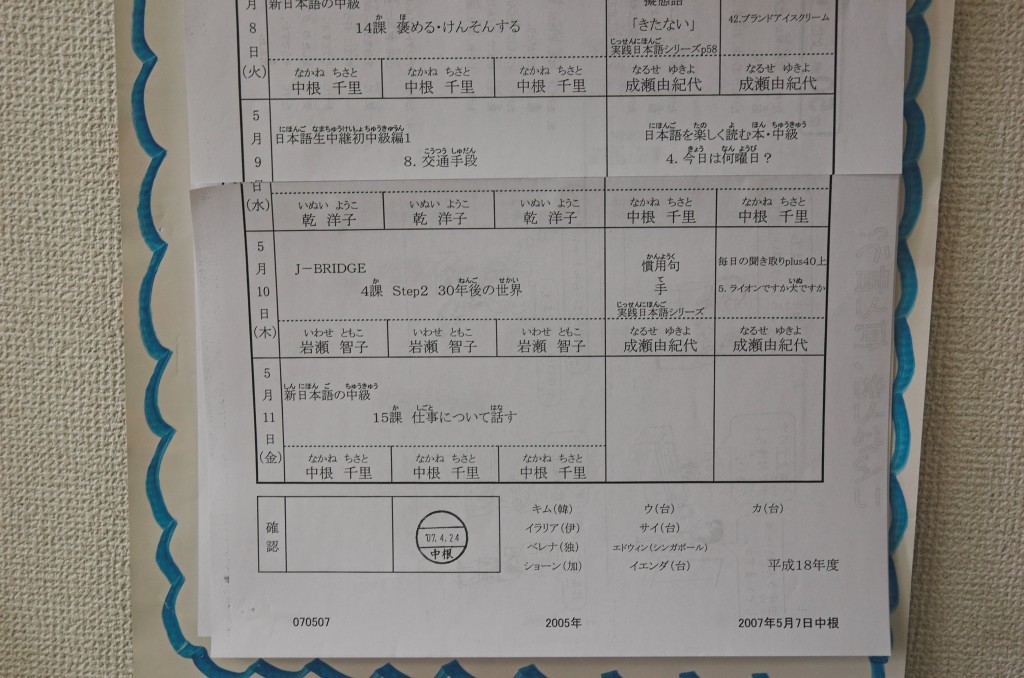 月
新日本語の中級
擬態語
8
か ほ
14課 褒める・けんそんする
「きたない」
42.ブランドアイスクリーム
日
じっせんにほんご
実践日本語シリーズp58
(火)
なかね ちさと なかね ちさと なかね ちさと なるせ ゆきよ なるせ ゆきよ
中根 千里 中根 千里 中根 千里 成瀬由紀代 成瀬由紀代
5
月
にほんご なまちゅうけいしょちゅうきゅうへん
日本語生中継初中級編1
にほんご たの よ ほん ちゅうきゅう
日本語を楽しく読む本・中級
9
こうつう しゅだん
8. 交通手段
きょう なん ようび
4. 今日は何曜日?
日
(水)
いぬい ようこ いぬい ようこ いぬい ようこ なかね ちさと なかね ちさと
乾 洋子 乾 洋子 乾 洋子 中根 千里 中根 千里
5
月
J-BRIDGE
かんようく
慣用句
毎日の聞き取りplus40上
10
か ねんご せかい
4課 Step2 30年後の世界
て
手
いぬ
5. ライオンですか犬ですか
日
じっせんにほんご
実践日本語シリーズ
(木)
いわせ ともこ いわせ ともこ いわせ ともこ なるせ ゆきよ なるせ ゆきよ
岩瀬 智子 岩瀬 智子 岩瀬 智子 成瀬由紀代 成瀬由紀代
5
月
しん にほん ご ちゅうきゅう
新日本語の中級
11
か しごと はな
15課 仕事について話す
日
(金)
なかね ちさと なかね ちさと なかね ちさと
中根 千里 中根 千里 中根 千里
確認
'07.4.24
中根
キム(韓) ウ(台) カ(台)
イラリア(伊) サイ(台)
ベレナ(独) エドウィン(シンガポール)
ショーン(加) イエンダ(台) 平成18年度
070507 2005年 2007年5月7日中根